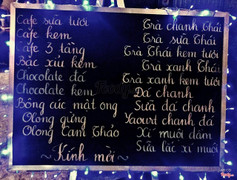 Cafe sữa tươi
Cafe kem
Cafe 3 tầng
Bạc xỉu kem
Chocolate đá
Chocolate kem
Bông cúc mật ong
Olong gừng
Olong Cam Thảo
~ Kính mời ~
Trà chanh Thái
Trà sữa Thái
Trà Thái kem tươi
Trà xanh Thái
Trà xanh kem tươi
Đá chanh
Sữa đá chanh
Yaourt chanh đá
Xí muội dầm
Sữa lắc xí muội